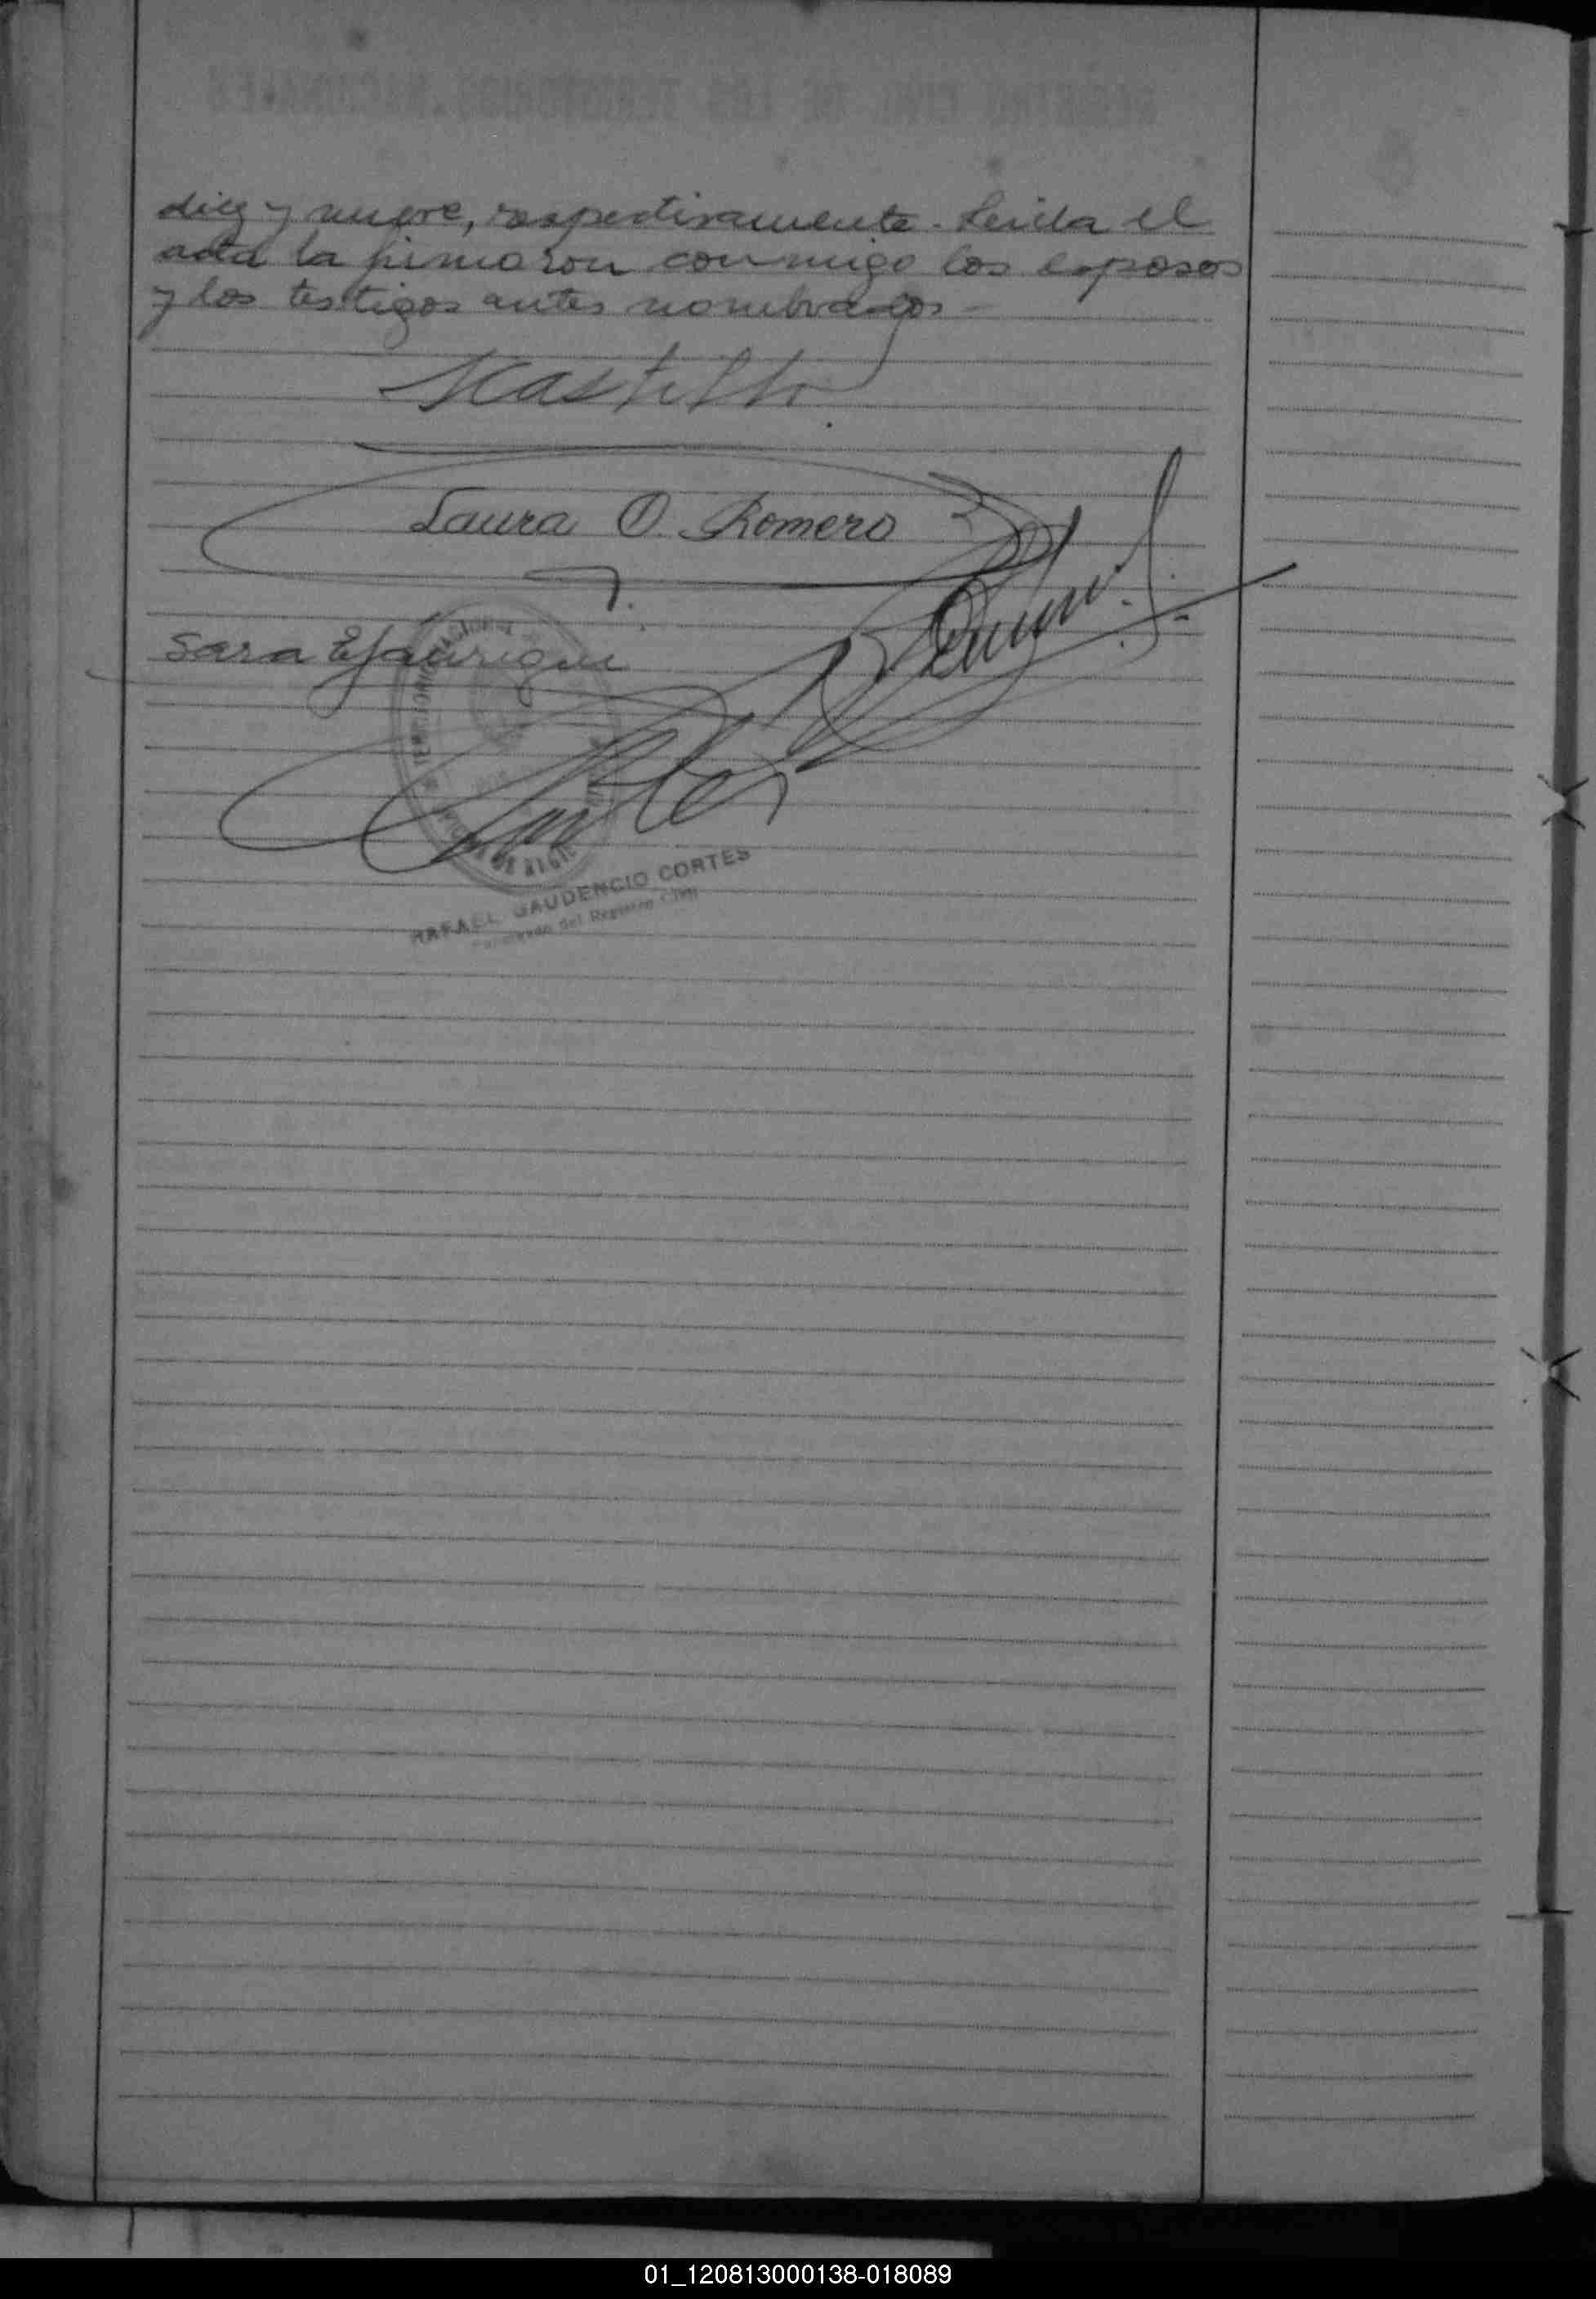 diez y nueve, respectivamente. Leida el
acta la firmaron conmigo los esposos
y los testigos antes nombrados-
Castillo
Laura O. Romero
Sara
RAFAEL GAUDENCIO CORTES
del Registro Civil
01_120813000138-018089